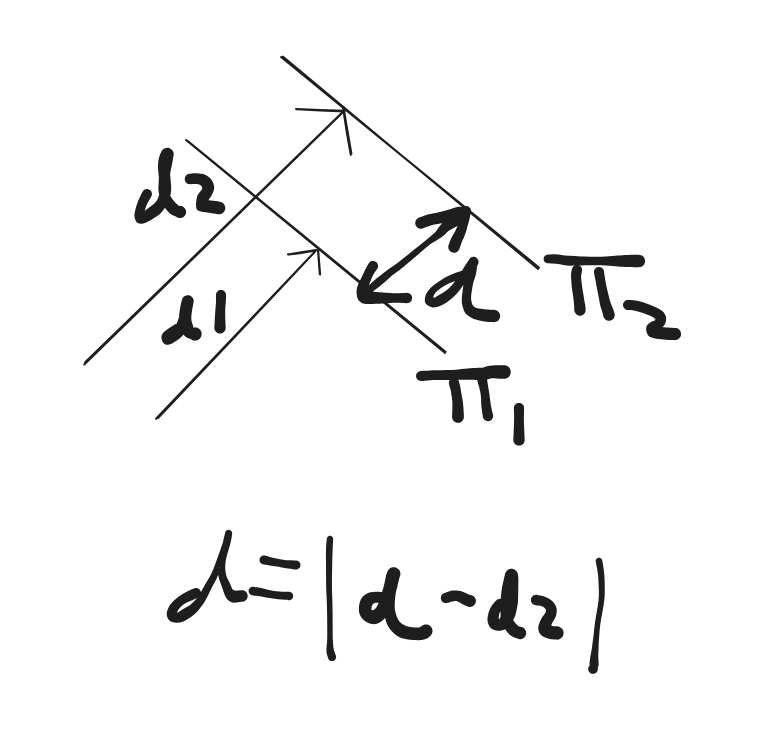 d2
d1
d
π₂
π₁
d=|d-d2|